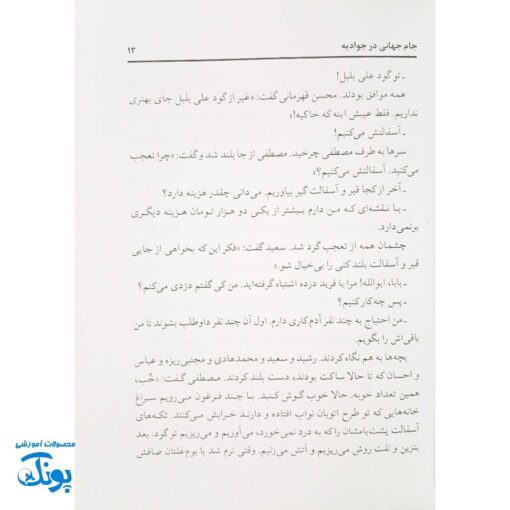 جام جهانی در جوادیه
۱۳
ـ تو گود علی بلبل!
همه موافق بودند. محسن قهرمانی گفت: «غیر از گود علی بلبل جای بهتری
نداریم. فقط عیبش اینه که خاکیه!»
ـ آسفالتش می‌کنیم!
سرها به طرف مصطفی چرخید. مصطفی از جا بلند شد و گفت: «چرا تعجب
می‌کنید. آسفالتش می‌کنیم؟»
ـ آخر از کجا قیر و آسفالت گیر بیاوریم. می‌دانی چقدر هزینه دارد؟
ـ با نقشه‌ای که من دارم بیشتر از یکی دو هزار تومان هزینه دیگری
برنمی‌دارد.
چشمان همه از تعجب گرد شد. سعید گفت: «فکر این که بخواهی از جایی
قیر و آسفالت بلند کنی را بی‌خیال شو.»
ـ بابا، ایوالله! مرا با فرید دزده اشتباه گرفته‌اید. من کی گفتم دزدی می‌کنم؟
ـ پس چه کار کنیم؟
ـ من احتیاج به چند نفر آدم کاری دارم. اول آن چند نفر داوطلب بشوند تا من
باقی‌اش را بگویم.
بچه‌ها به هم نگاه کردند. رشید و سعید و محمدهادی و مجتبی ریزه و عباس
و احسان که تا حالا ساکت بودند، دست بلند کردند. مصطفی گفت: «خُب،
همین تعداد خوبه. حالا خوب گوش کنید. با چند فرغون می‌رویم سراغ
خانه‌هایی که تو طرح اتوبان نواب افتاده و دارند خرابش می‌کنند. تکه‌های
آسفالت پشت‌بامشان را که به درد نمی‌خورد، می‌آوریم و می‌ریزیم تو گود. بعد
بنزین و نفت روش می‌ریزیم و آتش می‌زنیم. وقتی نرم شد با بوم‌غلتان صافش
محصولات آموزشی
پونک